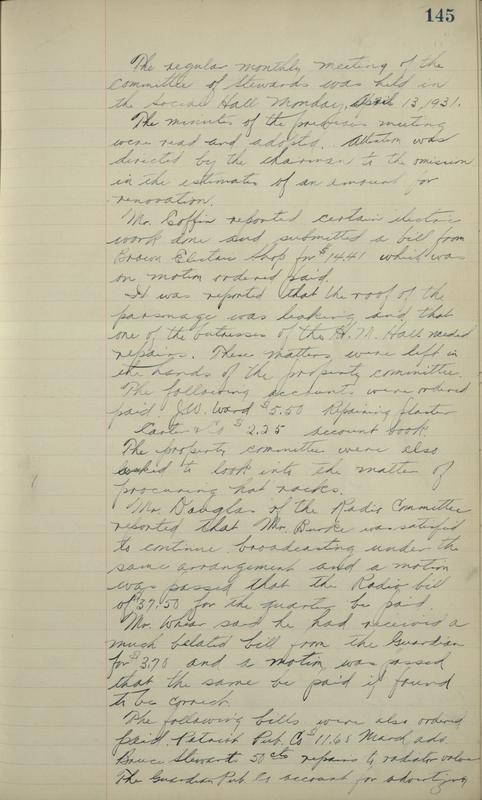 145
The regular monthly meeting of the
committee of Stewards was held in
the Social Hall Monday, April 13, 1931.
The minutes of the previous meeting
were read and adopted. Attention was
directed by the chairman to the omission
in the estimates of an amount for
renovation.
Mr. Coffin reported certain electric
work done and submitted a bill from
Brown Electric Shop for $14.41 which was
on motion ordered paid.
It was reported that the roof of the
parsonage was leaking and that
one of the butresses of the H. M. Hall needed
repairs. These matters were left in
the hands of the property committee.
The following accounts were ordered
paid J.W. Ward $5.50 Repairing plaster
Carter & Co $2.25 account book.
The property committee were also
asked to look into the matter of
procuring hat racks.
Mr. Douglas of the Radio Committee
reported that Mr. Burke was satisfied
to continue broadcasting under the
same arrangement and a motion
was passed that the Radio bill
of $37.50 for the quarter be paid.
Mr. said he had received a
much belated bill from the Guardian
for $3.70 and a motion was passed
that the same be paid if found
to be correct.
The following bills were also ordered
paid. Patriot Pub. Co $11.65 March ads.
Bruce Stewart 50 cts repairs to radiator valve
The Guardian Pub. Co account for advertising